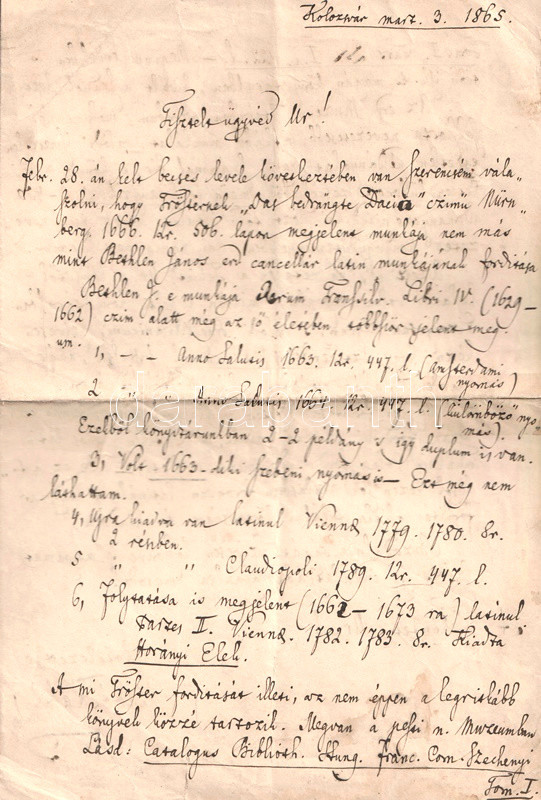 Kolozsvár mart. 3. 1865.
Tisztelt ügyvéd Ur!
Febr. 28. án kelt becses levele következtében van szerencsém vála„
szolni, hogy Trösternek „Das bedrängte Dacia" czimü Nürn„
berg. 1666. 12r. 506. lapon megjelent munkája nem más
mint Bethlen János erd cancellár latin munkájának forditása
Bethlen J. e munkája Rerum Transsilv. Libri IV. (1629–
1662) czim alatt még az iő életében többször jelent meg
um. 1, – – Anno Salutis 1663. 12r. 447. l. (Amsterdami
nyomás)
2 „ „ Anno Salutis 1664. 12r. 447 l. (különböző nyo
más).
Ezekből könyvtárunkban 2–2 példány s igy duplum is van.
3, Volt 1663-diki szebeni nyomás is – Ezt még nem
láthattam.
4, Ujra kiadva van latinul Viennæ 1779. 1780. 8r.
2 részben.
5 „ „ Claudiopoli 1789. 12r. 447. l.
6, Folytatása is megjelent (1662–1673 ra) latinul
Partes II. Viennæ. 1782. 1783. 8r. Kiadta
Horányi Elek.
A mi Tröster forditását illeti, az nem éppen a legritkább
könyvek közzé tartozik. Megvan a pesti n. Muzeumban
Lásd: Catalogus Biblioth. Hung. Franc. Com. Szechenyi
Tom. I.
darabanth